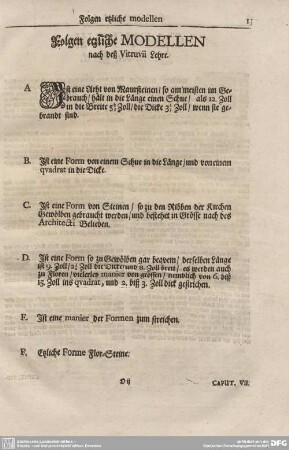 Folgen etzliche modellen 15
Folgen etzliche MODELLEN
nach deß Vitruvii Lehre.
A Ist eine Arht von Maursteinen / so am meisten im Ge-
brauch / hält in die Länge einen Schue / als 12. Zoll
in die Breite 5½ Zoll / die Dicke 3½ Zoll / wenn sie ge-
brandt sind.
B. Ist eine Form von einem Schue in die Länge / und von einem
qvadrat in die Dicke.
C. Ist eine Form von Steinen / so zu den Ribben der Kirchen
Gewölben gebraucht werden / und bestehet in Grösse nach des
Architecti Belieben.
D. Ist eine Form so zu Gewölben gar beqvem / derselben Länge
ist 9. Zoll / 2½ Zoll der Dicke und 2. Zoll breit / es werden auch
zu Floren / vielerley manier von grössen / nemblich von 6. biß
15. Zoll ins qvadrat, und 2. biß 3. Zoll dick gestrichen.
E. Ist eine manier der Formen zum streichen.
F. Etzliche Forme Flor-Steine.
D ij CAPUT. VII.